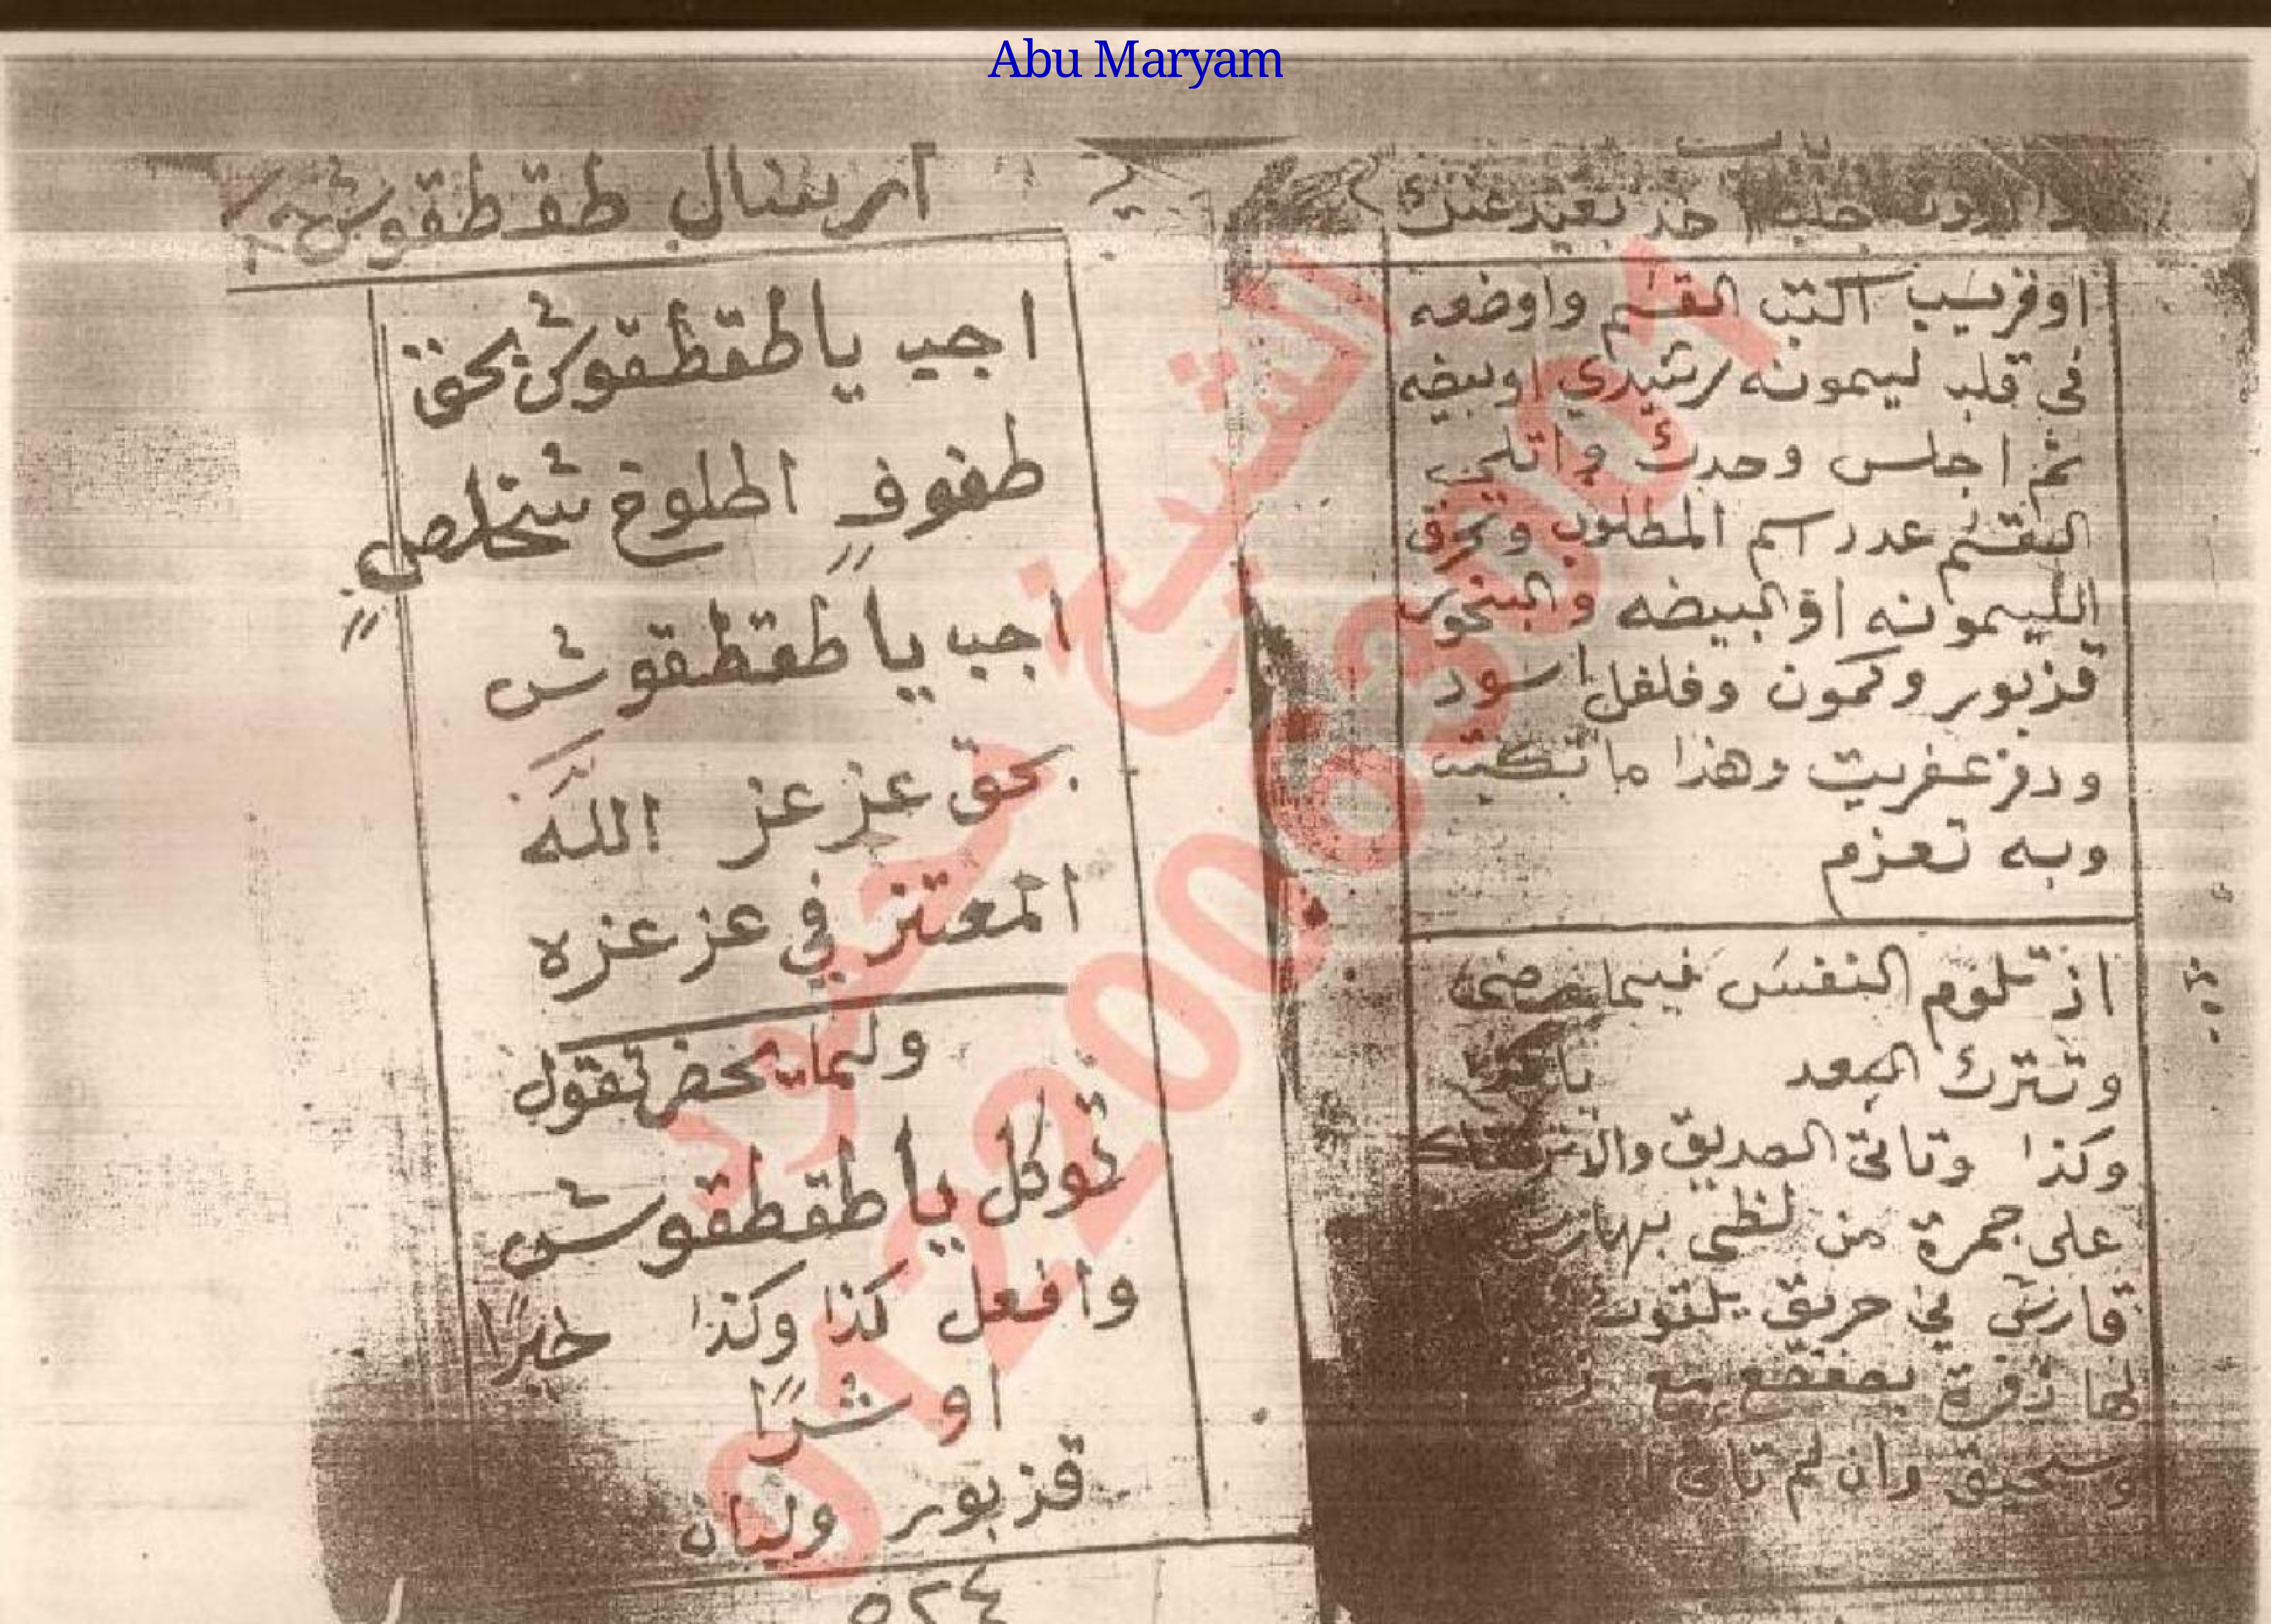 Abu Maryam
باب
جلب احد بعيد عنك
اوقريب اكتب القسم واوضعه
في قلب ليمونه رشيدي اوبيضه
ثم اجلس وحدك واتلى
القسم عدد اسم المطلوب وتحرق
الليمونه اوالبيضه والبخور
قزبور وكمون وفلفل اسود
ودفر عفريت وهذا ما تكتب
وبه تعزم
اذ تلوم النفس فيما مضى
وتترك البعد
وكذا وتاتى الصديق
على جمرة من لظى
في حريق
لها زفرة مع
وان لم تاتى
طقطقوش
اجيب ياطقطقوش بحق
طفوف اطلوخ شخلص
اجب ياطقطقوش
بحق عز عز الله
المعتز في عز عزه
ولما يحضر تقول
توكل ياطقطقوش
وافعل كذا وكذا خيرًا
او شرًا
قزبور ولبان
٥٢٤
الشيخ محمود
01220063001